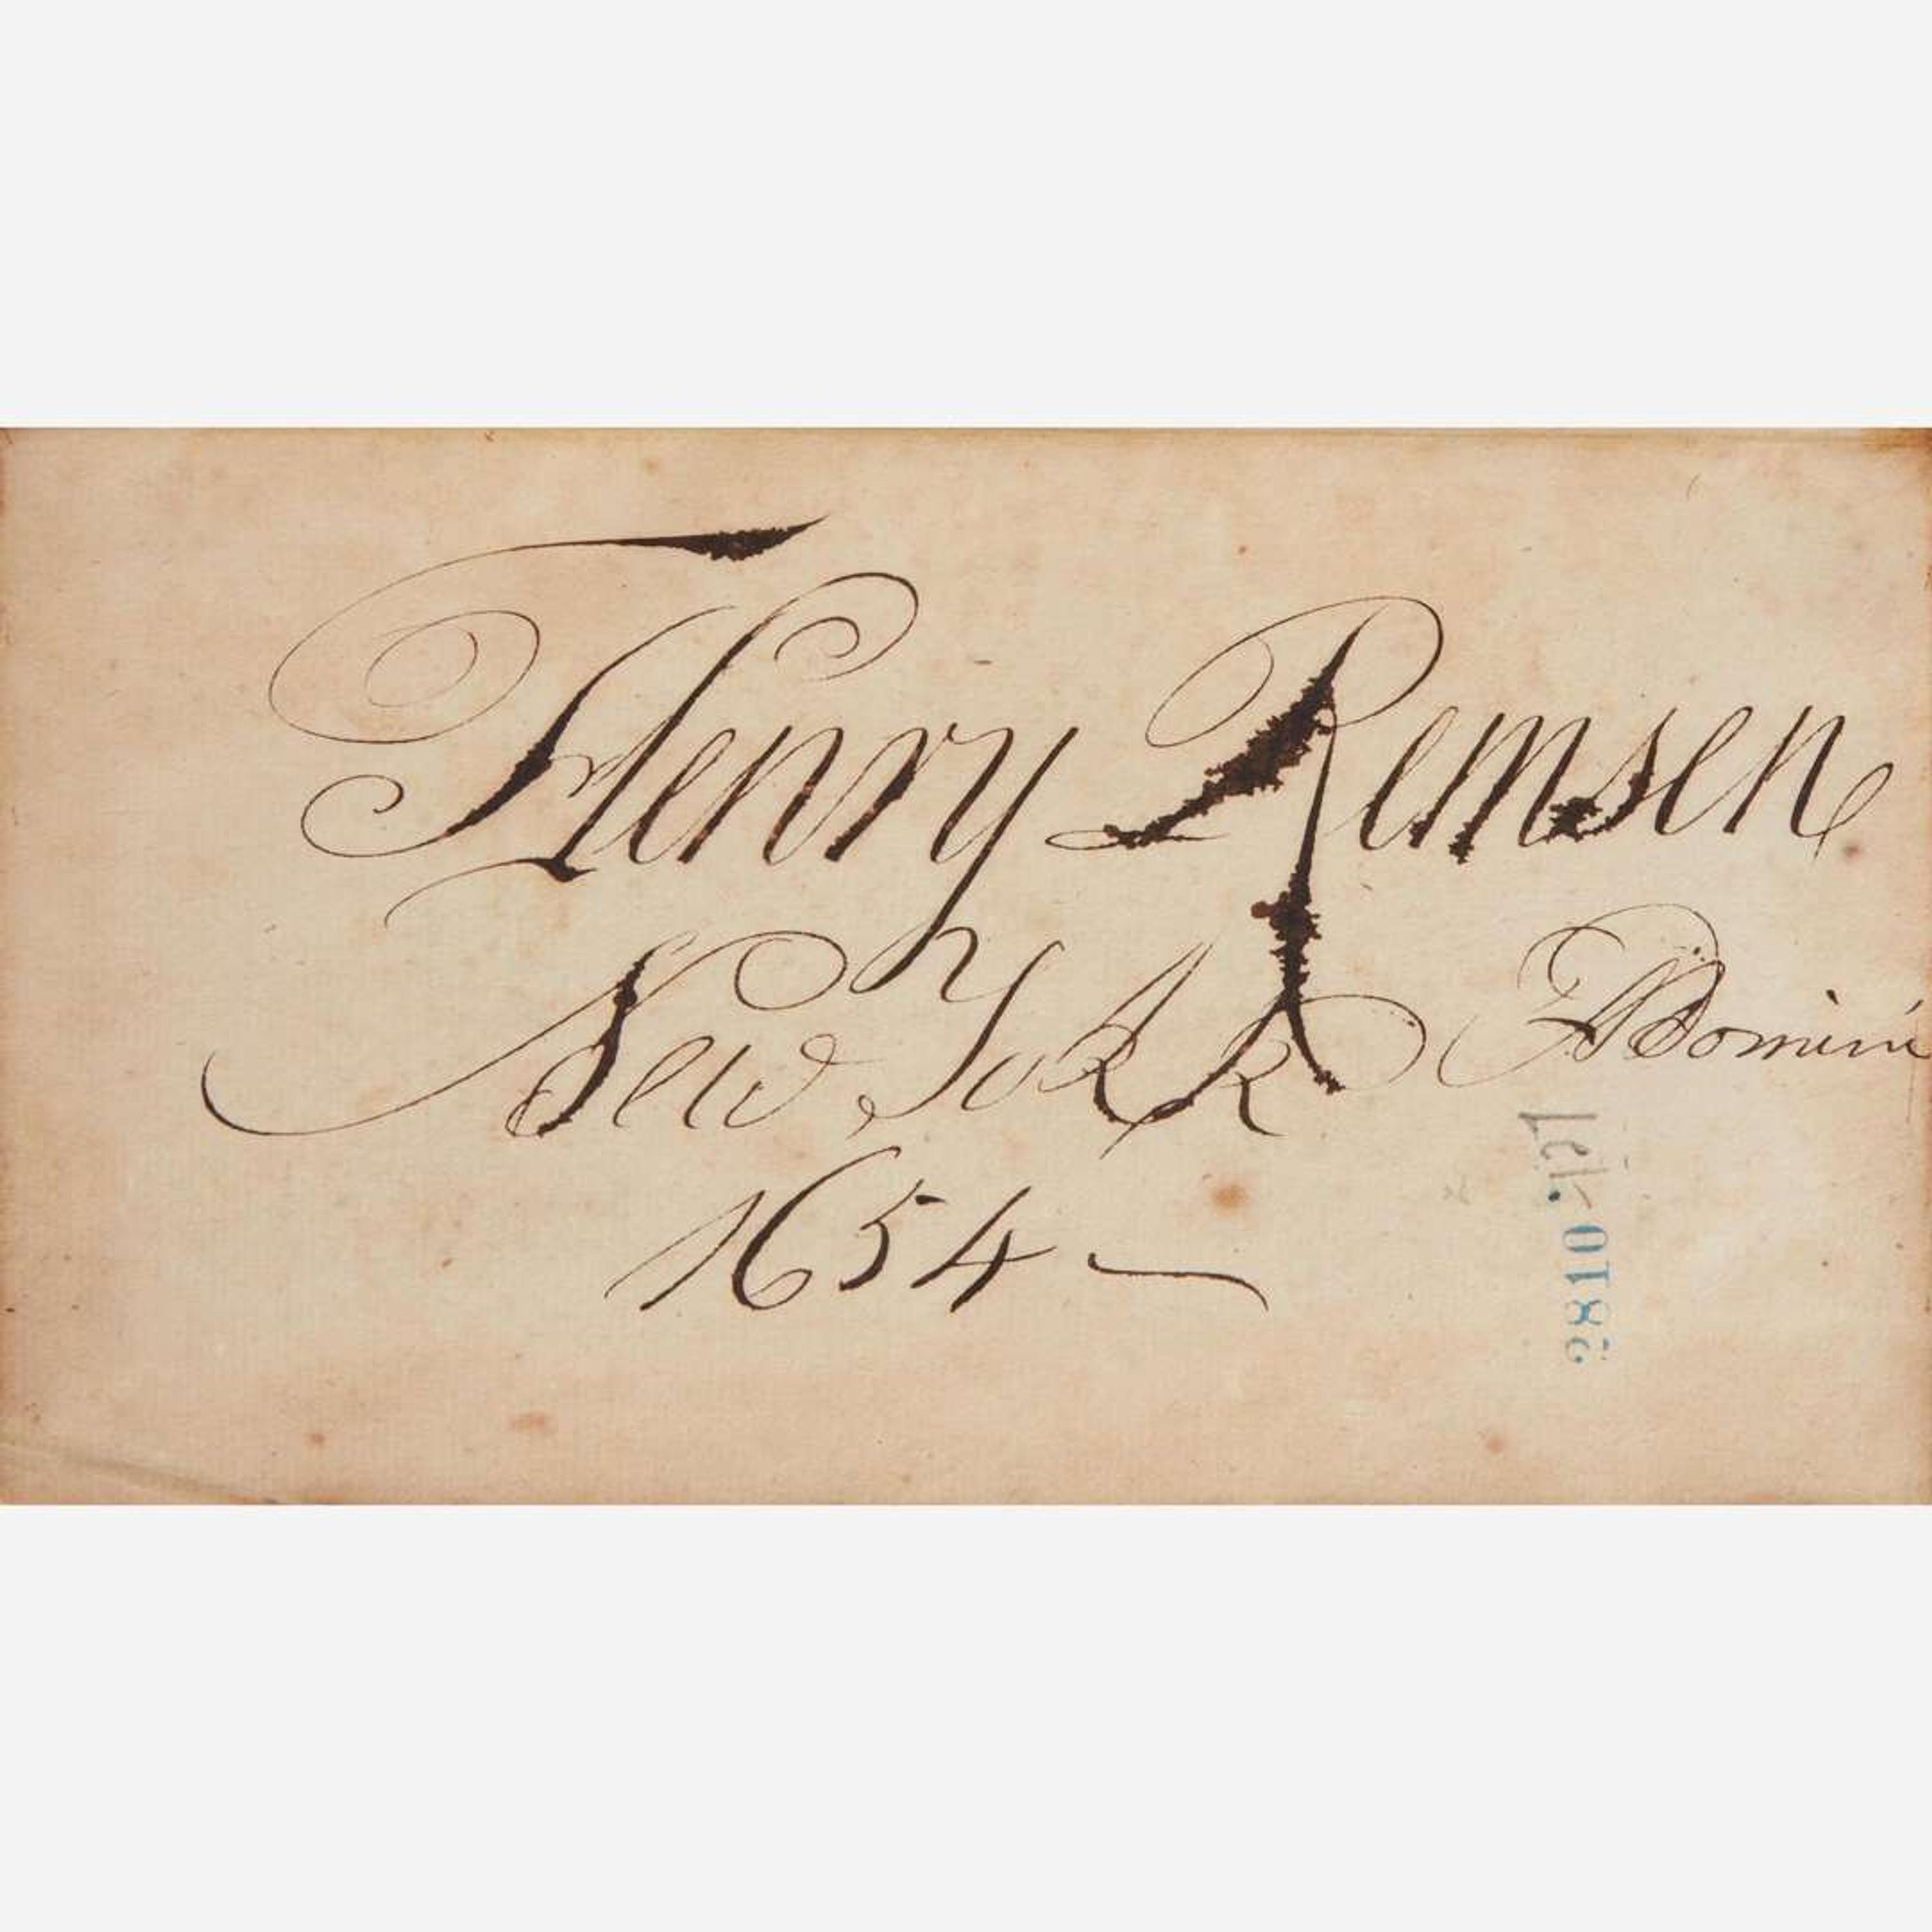 Henry Remsen
New York A Domini
1654
28107